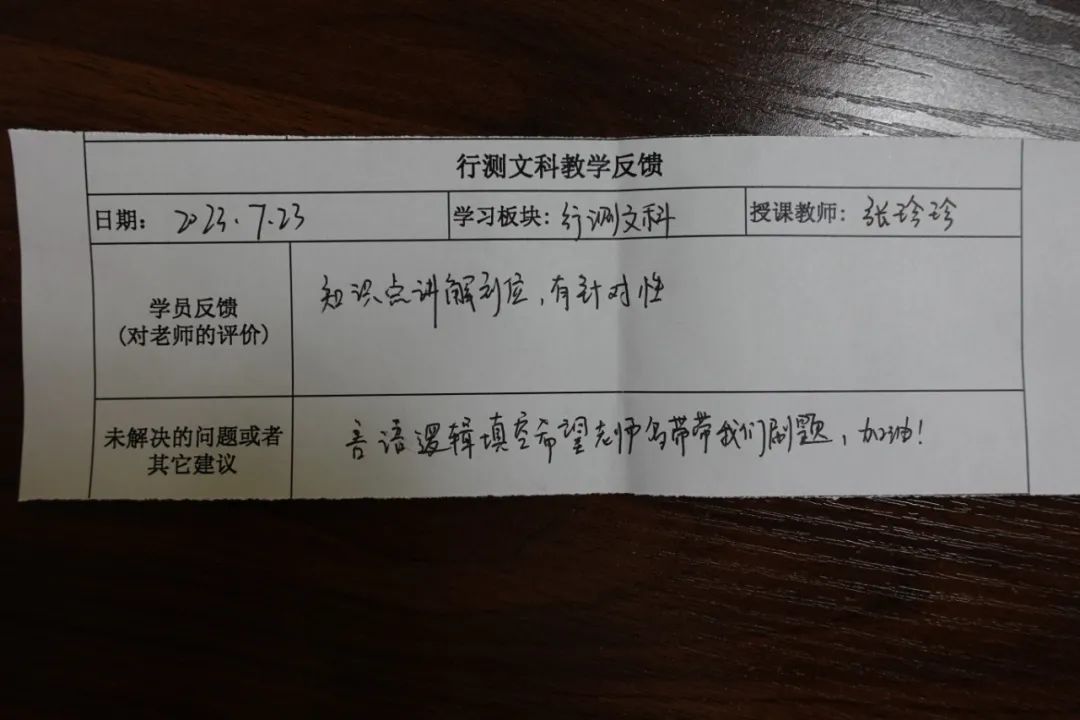 行测文科教学反馈
日期: 2023.7.23 学习板块: 行测文科 授课教师: 张珍珍
学员反馈
(对老师的评价)
知识点讲解到位，有针对性
未解决的问题或者
其它建议
言语逻辑填空希望老师多带带我们刷题，加油！